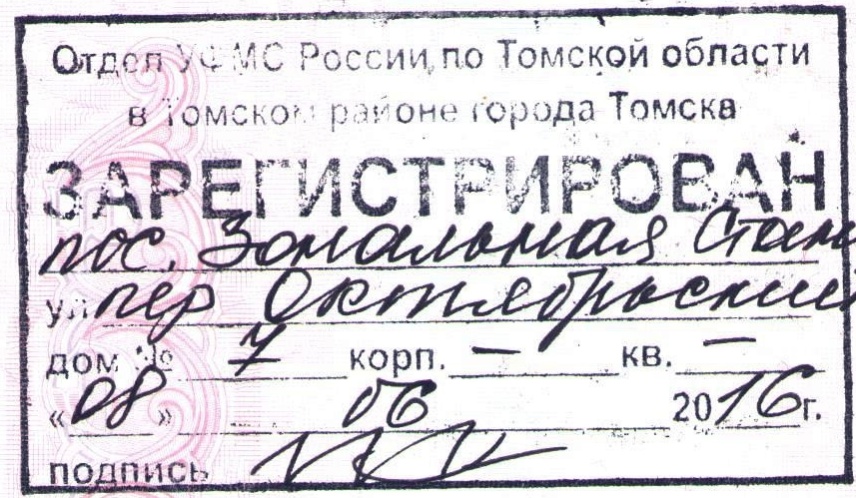 Отдел УФМС России по Томской области
в Томском районе города Томска
ЗАРЕГИСТРИРОВАН
пос. Зональная Стан
ул. пер Октябрьский
дом № 7 корп. – кв. –
«08» 06 2016г.
подпись